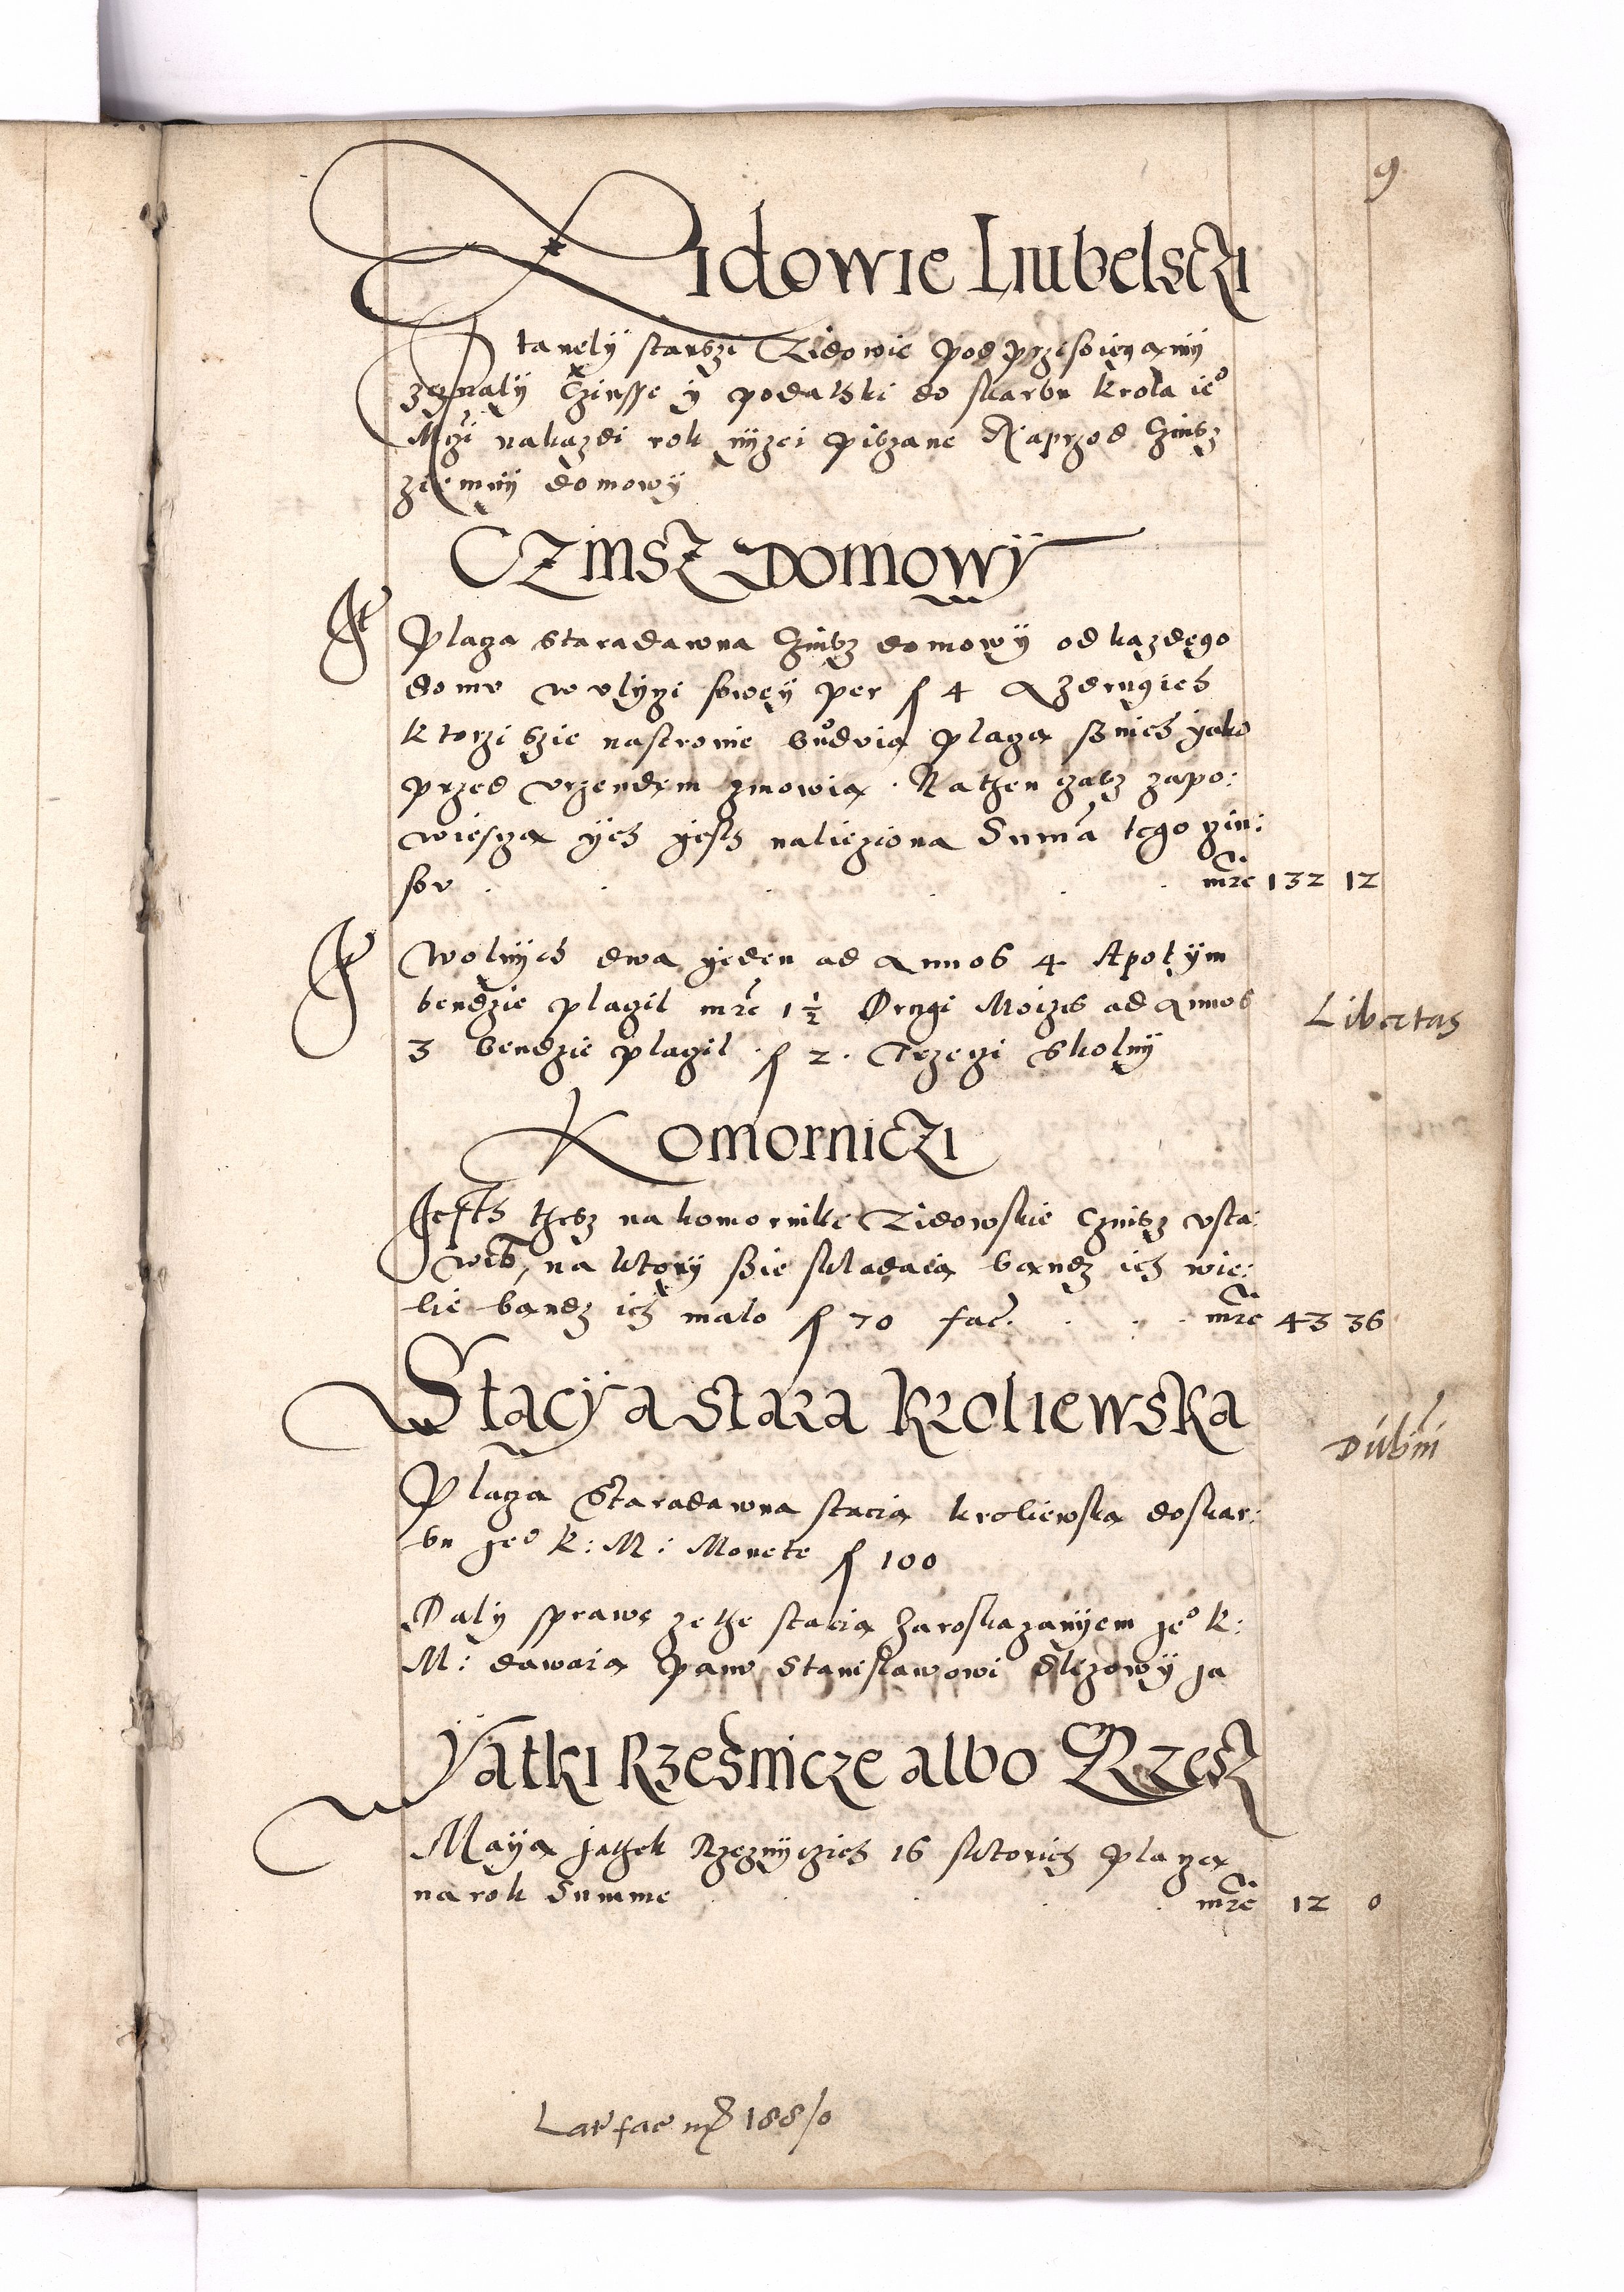 9
Zidowie Liubelsczi
Stanely starszi Zidowie pod przesiengamy
zeznaly Czinsse y podatki do skarbu krola ieo
Mczi nakazdi rok nyzei piszane Naprzod Czinsz
ziemny domowy
CZINSZ DOMOWY
It Placza staradawna Czinsz domowy od kazdego
domu w ulyczi sowey per f 4 A z drugich
ktorzi szie nastronie buduia placza s nich yako
przed urzendem zmowia. Na then czasz zapo:
wiescza ych jesth nalieziona Suma tego czin:
sov mrc 132 12
It Wolnych dwa jeden ad Annos 4 Apotym
bendzie placzil mrc 1 1/2 Drugi Moizes ad Annos
3 bendzie placzil f 2. Trzeczi skolny
Libertas
Komorniczi
Jesth thesz na komornike Zidowskie Czinsz usta:
wion, na ktory szie skladaia bandz ich wie:
lie bandz ich malo f 70 fac. mrc 43 36
Stacya stara Kroliewska
Dubni
Placza Staradawna stacia kroliewska doskar:
bu jeo K: M: Monete f 100
Daly sprawe ze the stacia za roskazanyem jeo K:
M: dawaia Panu Stanislawowi Slizowy ja
Yatki Rzesnicze albo Rzesz
Maya jathek Rzeznyczich 16 sktorich placza
na rok Summe mrc 12 0
Lat fac mr 188/0